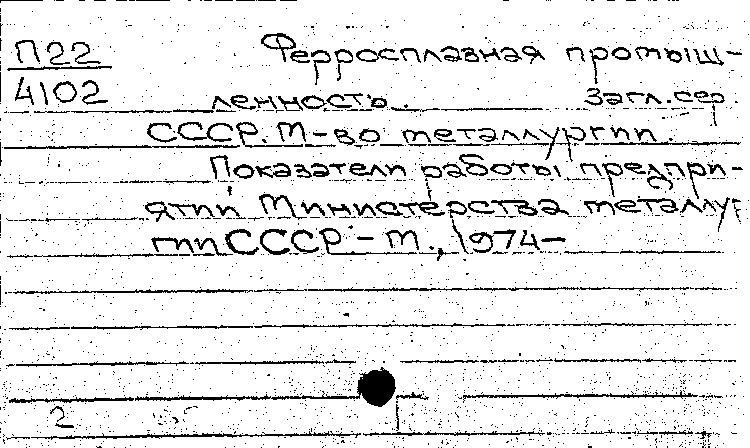 П22
4102
Ферросплавная промыш-
ленность. Загл. сер.
СССР. М-во металлургии.
Показатели работы предпри-
ятий Министерства металлур
гии СССР. - М., 1974-
2